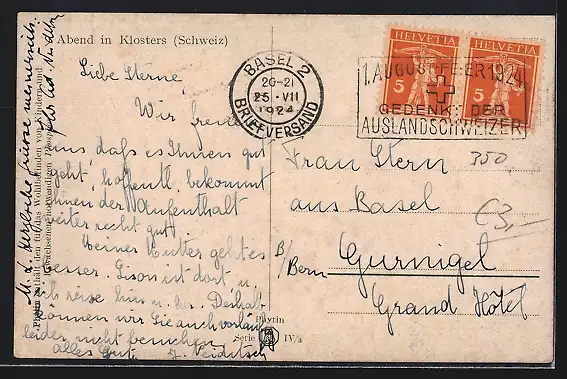 Abend in Klosters (Schweiz)
Liebe Sterne,
Wir freuen
uns, daß es Ihnen gut
geht, hoffentl. bekommt
Ihnen der Aufenthalt
weiter recht gut.
Meiner Mutter geht es
besser. Lison ist dort u.
ich reise hin u. her. Deshalb
können wir Sie auch vorläufig
leider nicht besuchen
alles Gute
BASEL 2
20-21
25. VII
1924
BRIEFVERSAND
HELVETIA
5
HELVETIA
5
1. AUGUST-FEIER 1924
GEDENKT DER
AUSLANDSCHWEIZER
350
€3,-
Frau Stern
aus Basel
B/Bern
Gurnigel
Grand Hôtel
Phytin enthält den für das Wohlbefinden von Kindern und
Erwachsenen notwendigen
Phytin
Serie
IV/a